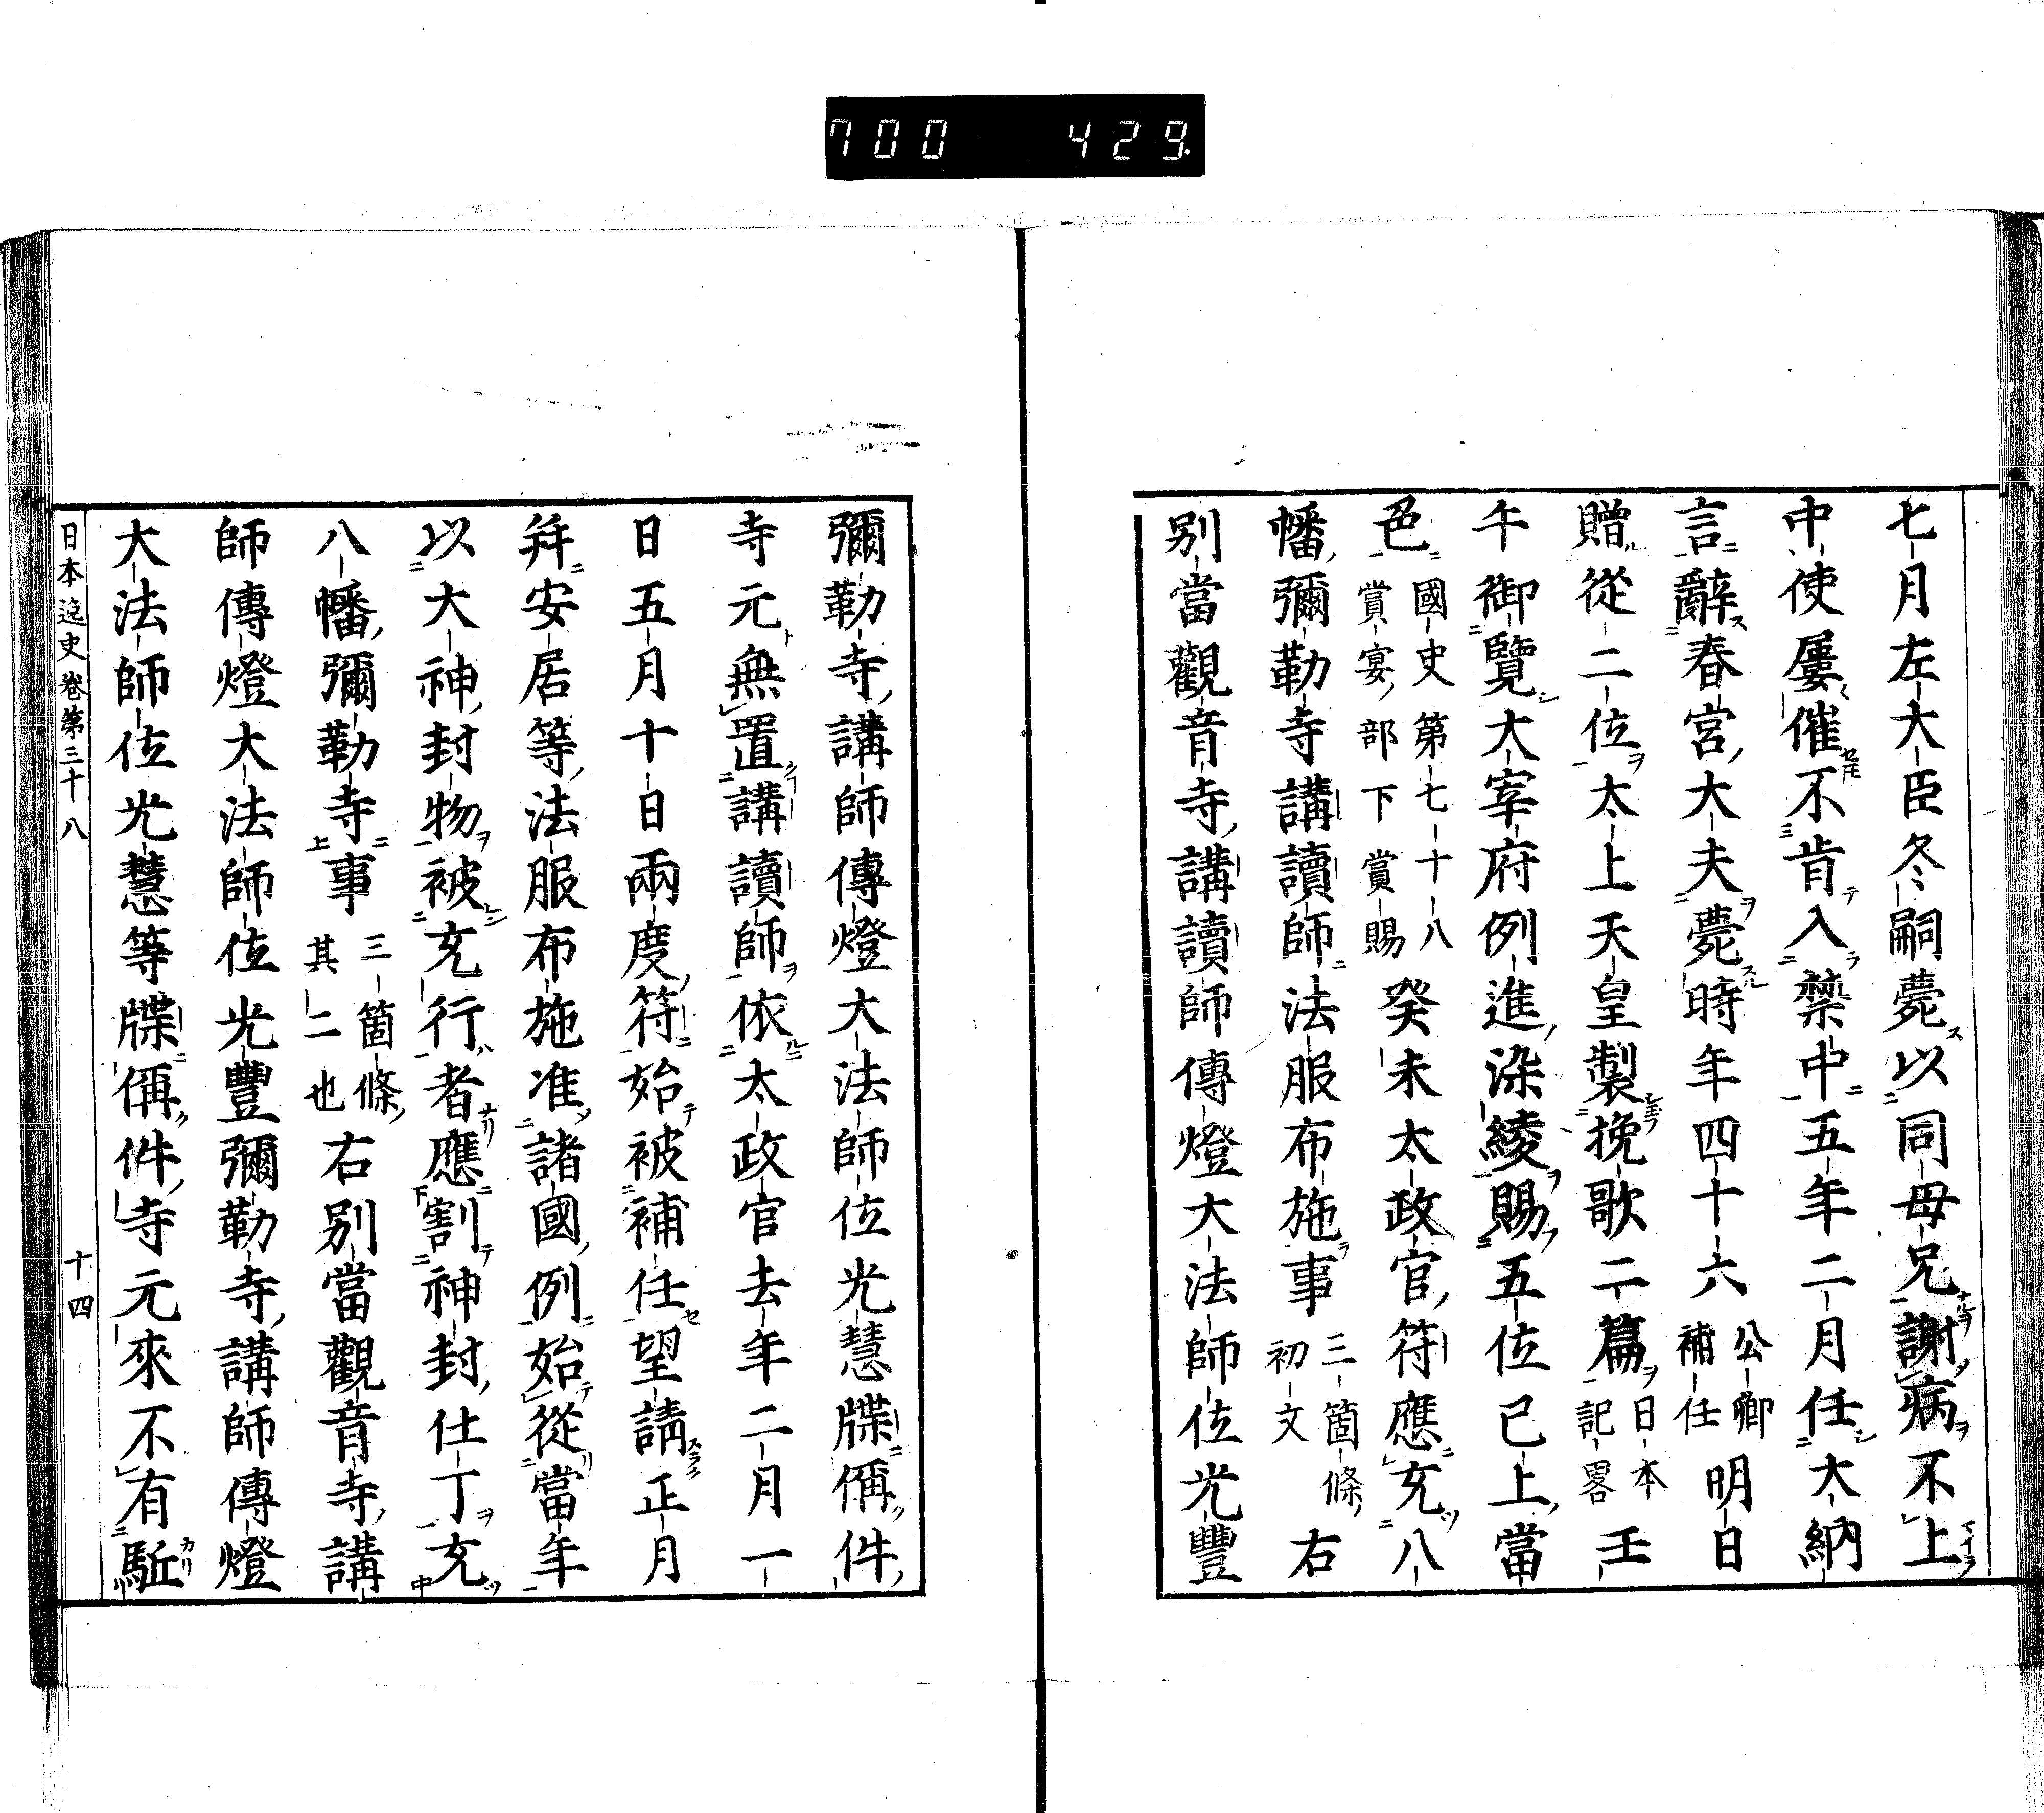 700 429
七月左大臣冬嗣薨以同母兄謝病不上
中使屢催不肯入禁中五年二月任大納
言辭春宮大夫薨時年四十六公卿補任明日
贈從二位太上天皇製挽歌二篇日本記畧壬
午御覽大宰府例進染綾賜五位已上當
色國史第七十八賞宴部下賞賜癸未太政官符應充八
幡彌勒寺講讀師法服布施事三箇條初文右
別當觀音寺講讀師傳燈大法師位光豐
彌勒寺講師傳燈大法師位光慧牒偁件
寺元無置講讀師依太政官去年二月一
日五月十日兩度符始被補任望請正月
并安居等法服布施准諸國例始從當年
以大神封物被充行者應割神封仕丁充
八幡彌勒寺事三箇條其二也右別當觀音寺講
師傳燈大法師位光豐彌勒寺講師傳燈
大法師位光慧等牒偁件寺元來不有駈
日本逸史卷第三十八 十四